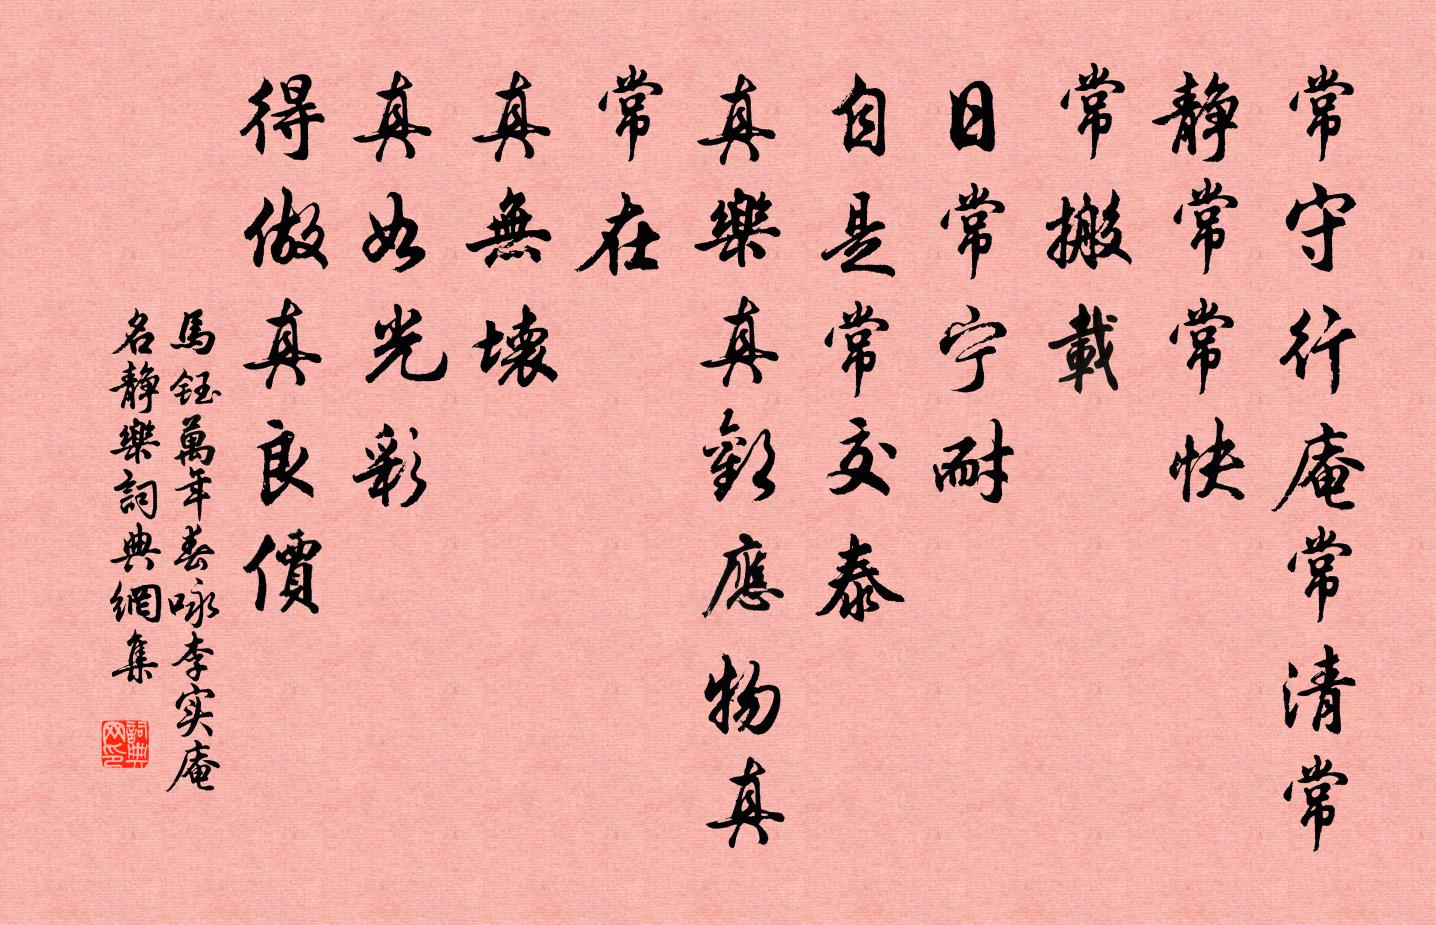 常守行庵常清常
靜常常快
常搬載
日常宁耐
自是常交泰
真樂真歡應物真
常在
真無壞
真如光彩
得做真良價
馬鈺萬年春咏李实庵
名靜樂詞典網集
詞典
网印